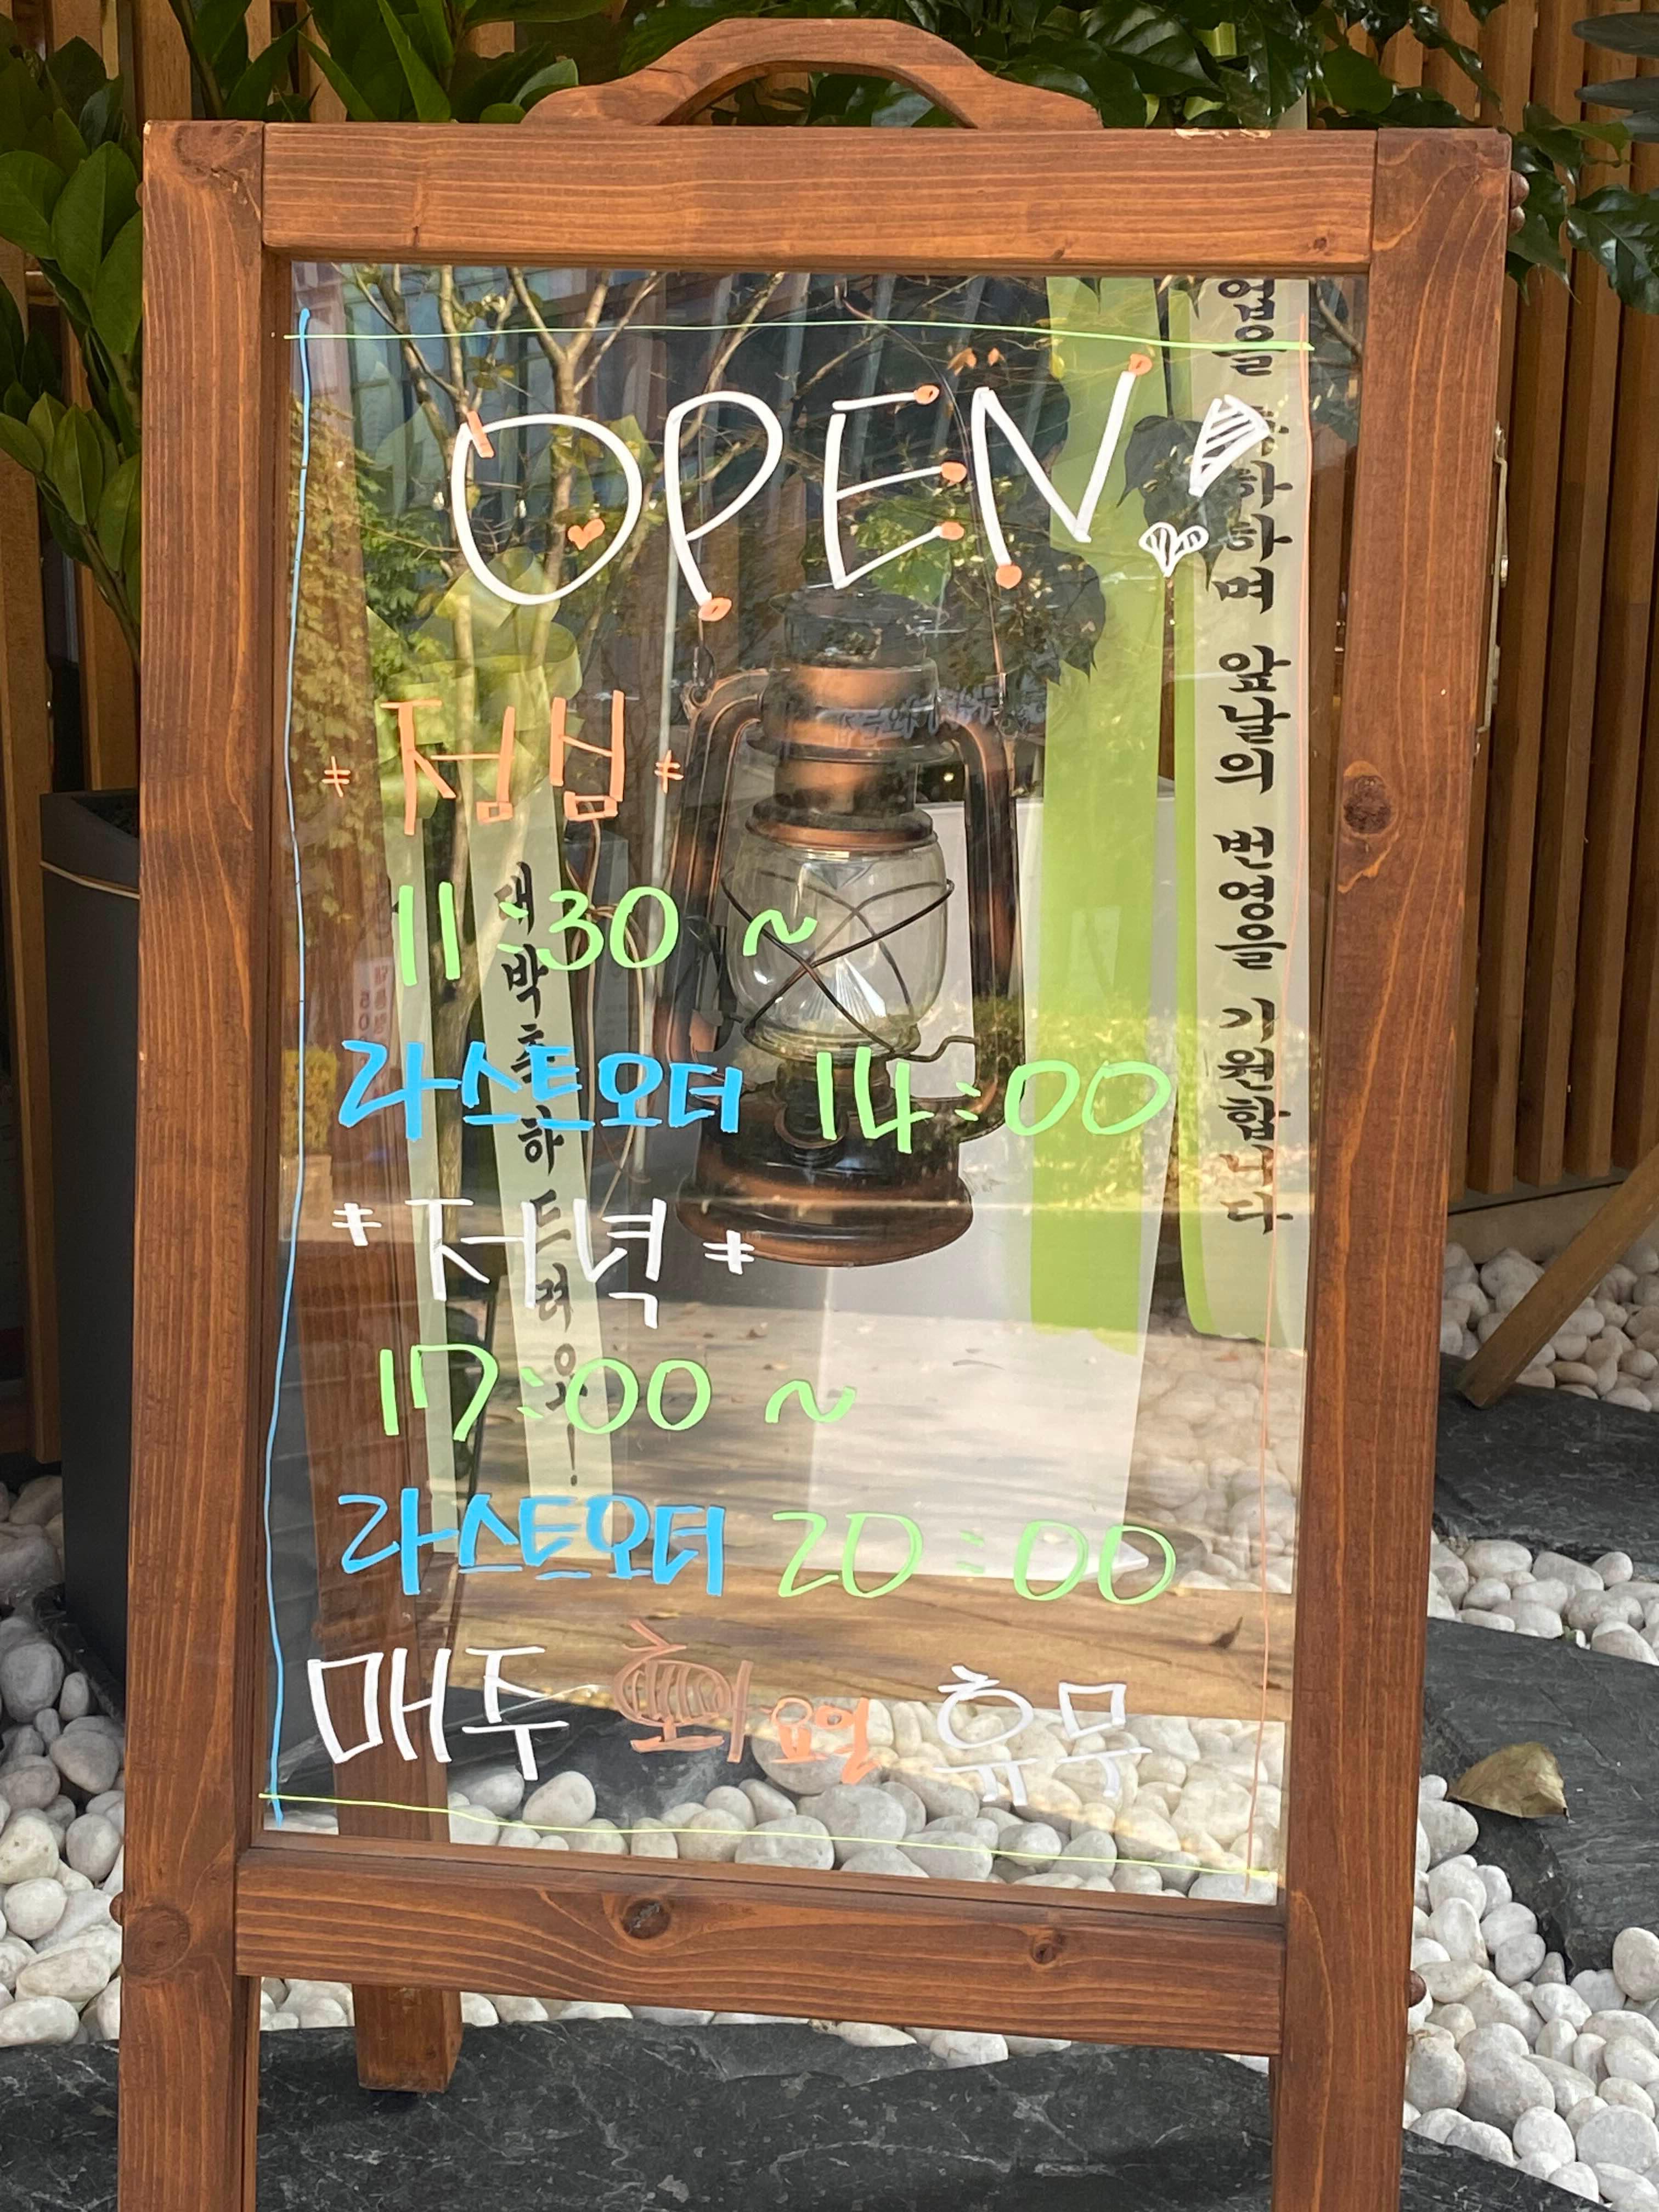 OPEN!
*점심*
11:30 ~
라스트오더 14:00
*저녁*
17:00 ~
라스트오더 20:00
매주 화요일 휴무
대박 축하드려요!
앞날의 번영을 기원합니다